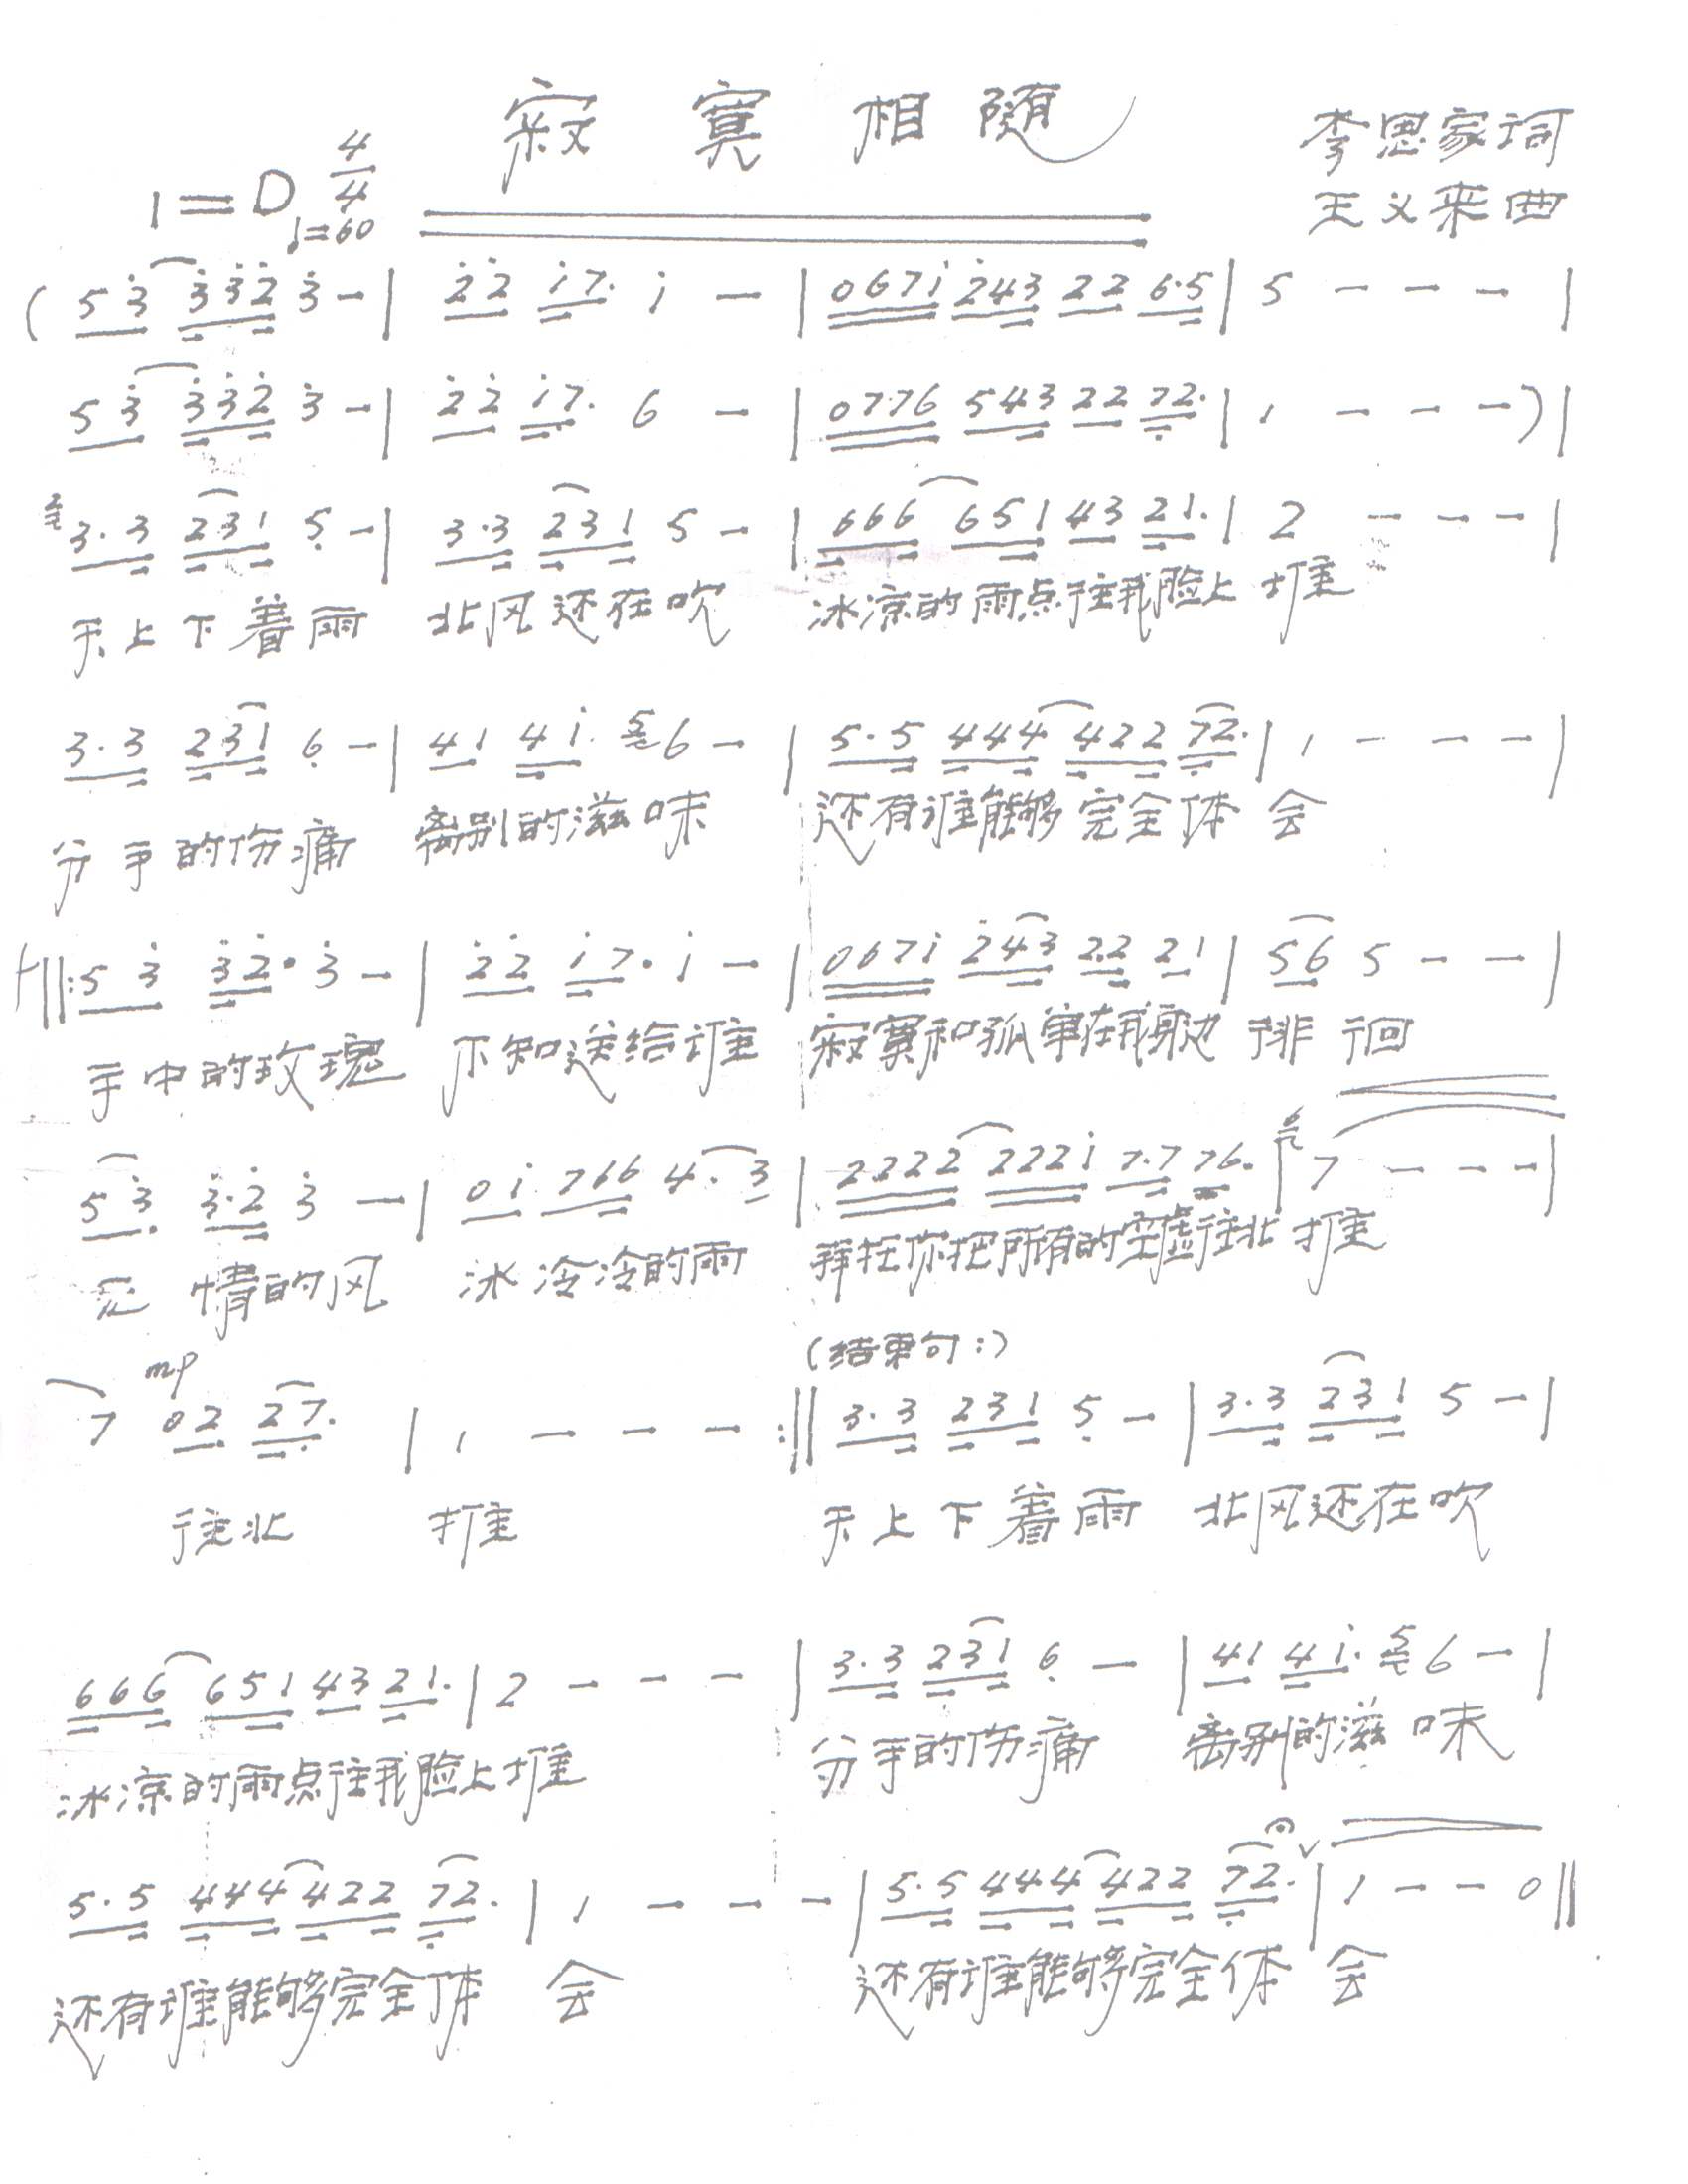 寂寞相随
李思家词
1=D 4/4
♩=60
王义来曲
(5 3̇ 3̇ 3̇ 2̇ 3̇ - | 2̇ 2̇ 1̇ 7. 1̇ - | 0 6 7 1̇ 2̇ 4 3 2 2 6·5 | 5 - - - |
5 3̇ 3̇ 3̇ 2̇ 3̇ - | 2̇ 2̇ 1̇ 7. 6 - | 0 7·7 6 5 4 3 2 2 7̣ 2. | 1 - - -) |
3·3 2 3 1 5̣ - | 3·3 2 3 1 5 - | 6 6 6 6 5 1 4 3 2 1. | 2 - - - |
天上下着雨 北风还在吹 冰凉的雨点往我脸上堆
3·3 2 3 1 6̣ - | 4 1 4 1̇. 6 - | 5·5 4 4 4 4 2 2 7̣ 2. | 1 - - - |
分手的伤痛 离别的滋味 还有谁能够完全体会
‖: 5 3̇ 3̇ 2̇· 3̇ - | 2̇ 2̇ 1̇ 7· 1̇ - | 0 6 7 1̇ 2̇ 4 3 2 2 2 1 | 5 6 5 - - |
手中的玫瑰 不知送给谁 寂寞和孤单在我身边徘徊
5 3̇. 3̇·2̇ 3̇ - | 0 1̇ 7 6 6 4· 3 | 2 2 2 2 2 2 2 1̇ 7·7 7 6. | 7 - - - |
无情的风 冰冷冷的雨 拜托你把所有的空虚往北推
mp
(结束句:)
7 0 2 2 7̣. | 1 - - - :‖ 3·3 2 3 1 5̣ - | 3·3 2 3 1 5 - |
往北 推 天上下着雨 北风还在吹
6 6 6 6 5 1 4 3 2 1. | 2 - - - | 3·3 2 3 1 6̣ - | 4 1 4 1̇. 6 - |
冰凉的雨点往我脸上堆 分手的伤痛 离别的滋味
5·5 4 4 4 4 2 2 7̣ 2. | 1 - - - | 5·5 4 4 4 4 2 2 7̣ 2. | 1 - - 0 ‖
还有谁能够完全体会 还有谁能够完全体会